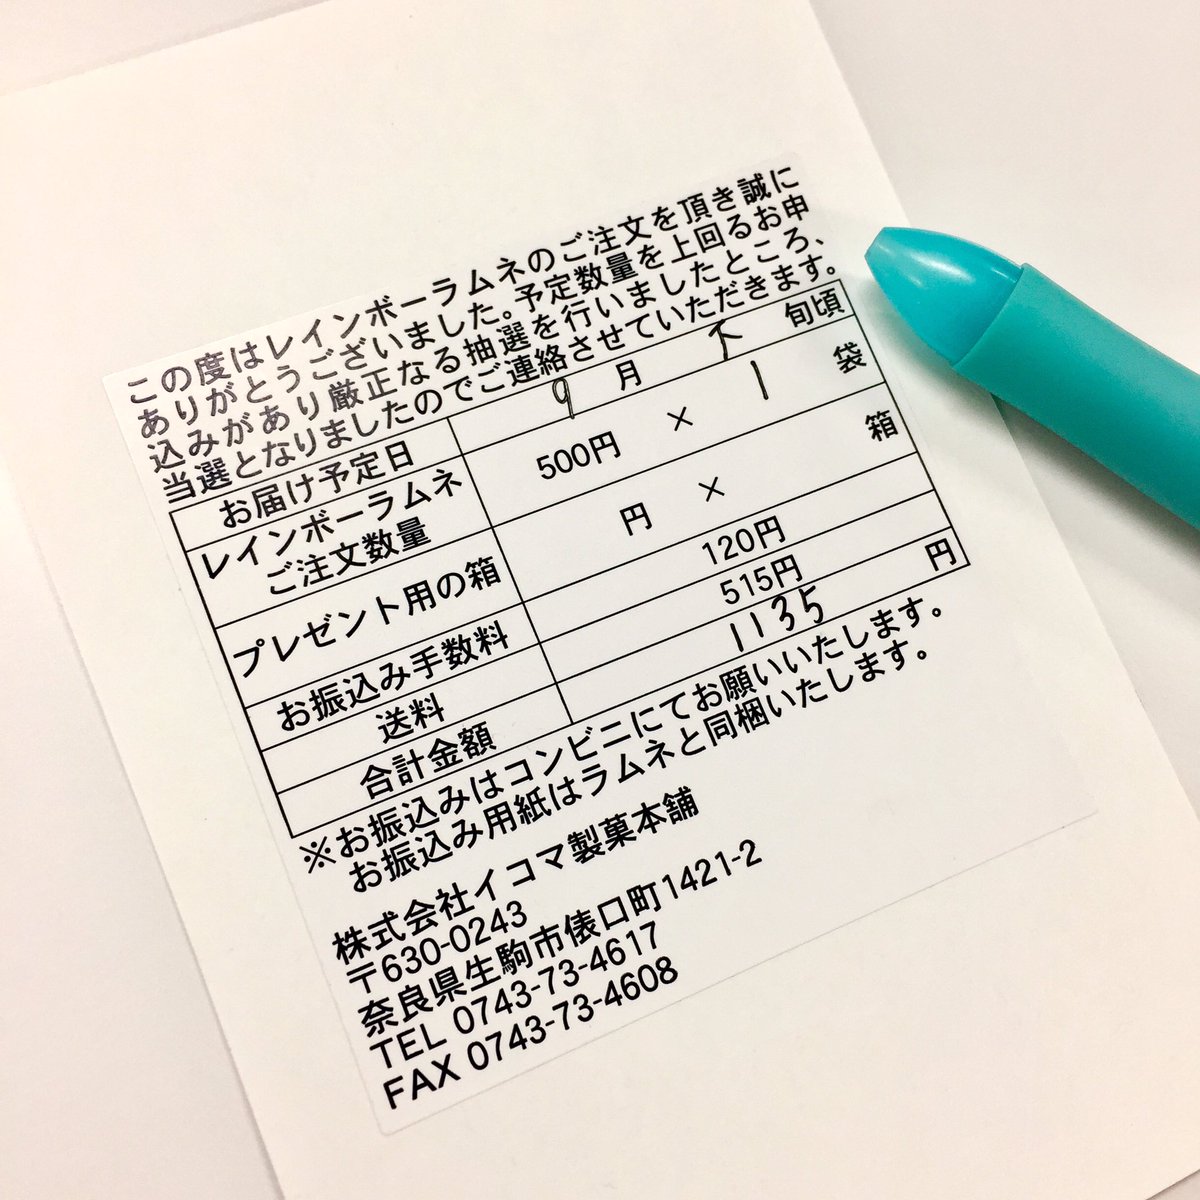 この度はレインボーラムネのご注文を頂き誠に
ありがとうございました。予定数量を上回るお申
込みがあり厳正なる抽選を行いましたところ、
当選となりましたのでご連絡させていただきます。
お届け予定日 9 月 下 旬頃
レインボーラムネ
ご注文数量 500円 × 1 袋
プレゼント用の箱 円 × 箱
お振込み手数料 120円
送料 515円
合計金額 1135 円
※お振込みはコンビニにてお願いいたします。
お振込み用紙はラムネと同梱いたします。
株式会社イコマ製菓本舗
〒630-0243
奈良県生駒市俵口町1421-2
TEL 0743-73-4617
FAX 0743-73-4608